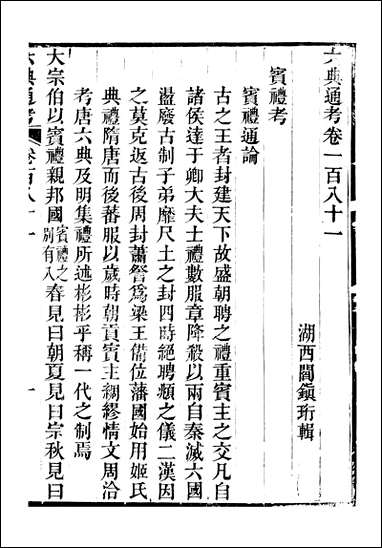 六典通考卷一百八十一
湖西閻鎮珩輯
賓禮考
賓禮通論
古之王者封建天下故盛朝聘之禮重賓主之交凡自
諸侯達于卿大夫士禮數服章降殺以兩自秦滅六國
盪廢古制子弟靡尺土之封四時絕聘頫之儀二漢因
之莫克返古後周封蕭詧為梁王備位藩國始用姬氏
典禮隋唐而後蕃服以歲時朝貢賓主綢繆情文周洽
考唐六典及明集禮所述彬彬乎稱一代之制焉
大宗伯以賓禮親邦國賓禮之別有八春見曰朝夏見曰宗秋見曰
六典通考
卷百八十一
一